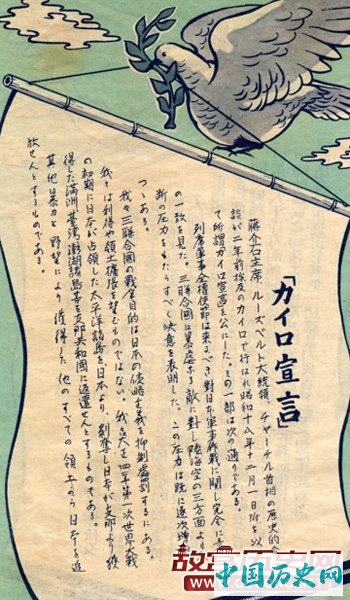 「カイロ宣言」
蔣介石主席、ルーズベルト大統領、チャーチル首相の歴史的会
談が二年前埃及のカイロで行はれ昭和十八年十二月一日附を以
て所謂カイロ宣言を公にした。その一部は次の通りである。
列席軍事全権使節は来るべき対日本軍事作戦に関し完全に意
の一致を見た。三聯合國は暴虐なる敵に対し陸海空の三方面より
断の圧力をもたらすべく決意を表明した。この圧力は既に逐次増
つゝある。
我々三聯合國の戦争目的は日本の侵略主義を抑制處罰するにある。
我々は利得や領土擴張を望むものではない。四年第一次世界大戦
の初期に日本が占領した太平洋諸島を日本より剥奪し日本が支那より獲
得した満洲臺湾澎湖諸島等を支那共和國に返還せんとするものである。
其他暴力と野望により獲得した他のすべての領土から日本を追
放せんとするものである。
故宫历史网
www.
中国历史网